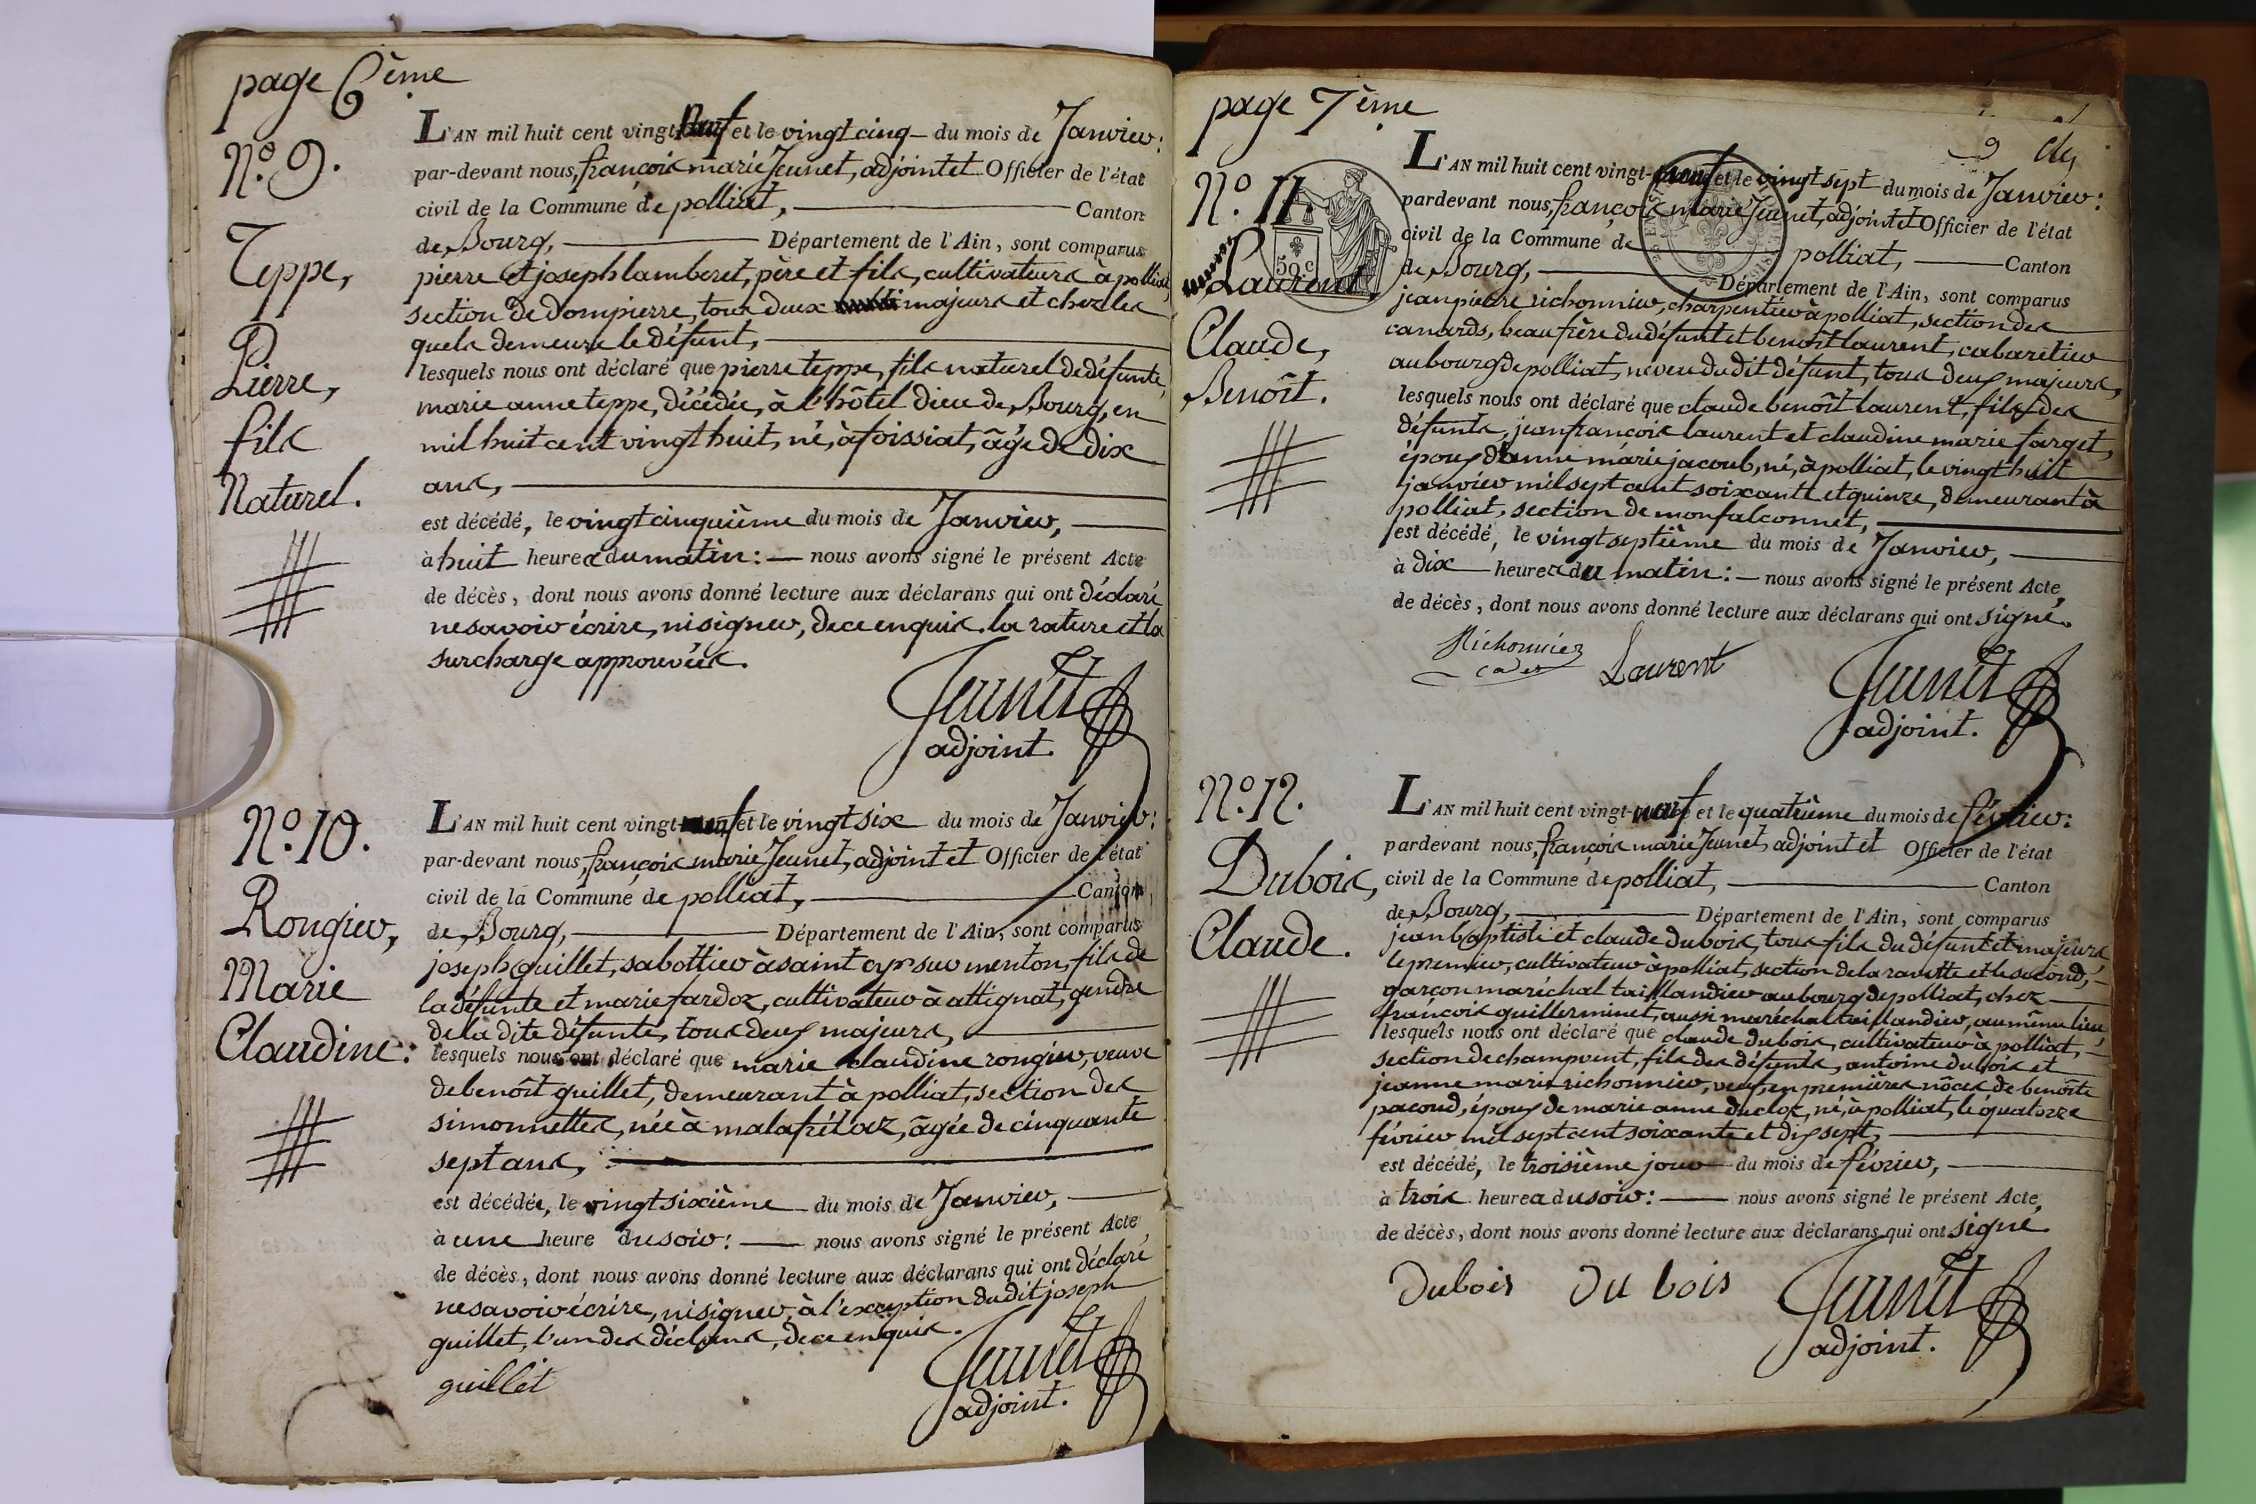 page 6ème
N.º 9.
Teppe,
Pierre,
fils
Naturel.
L'AN mil huit cent vingt-neuf et le vingt cinq du mois de Janvier:
par-devant nous, françois marie Jeunet, adjoint et Officier de l'état
civil de la Commune de polliat, Canton
de Bourg, Département de l'Ain, sont comparus
pierre et joseph lamberet, père et fils, cultivateurs à polliat,
section de dompierre, tous deux majeurs et chez les
quels demeure le défunt,
lesquels nous ont déclaré que pierre teppe, fils naturel de défunte,
marie anne teppe, décédée, à l'hôtel dieu de Bourg, en
mil huit cent vingt huit, né, à foissiat, âgé de dix
ans,
est décédé, le vingt cinquième du mois de Janvier,
à huit heures du matin: nous avons signé le présent Acte
de décès, dont nous avons donné lecture aux déclarans qui ont déclaré
ne savoir écrire, ni signer, de ce enquis. la rature et la
surcharge approuvées.
Jeunet
adjoint.
N.º 10.
Rongier,
Marie
Claudine:
L'AN mil huit cent vingt-neuf et le vingt six du mois de Janvier:
par-devant nous, françois marie Jeunet, adjoint et Officier de l'état
civil de la Commune de polliat, Canton
de Bourg, Département de l'Ain, sont comparus
joseph guillet, sabottier à saint cyr sur menton, fils de
la défunte et marie fardoz, cultivateur à attignat, gendre
de la dite défunte, tous deux majeurs,
lesquels nous ont déclaré que marie claudine rongier, veuve
de benoît guillet, demeurant à polliat, section des
simonnettes, née à malafrétaz, âgée de cinquante
sept ans,
est décédée, le vingt sixième du mois de Janvier,
à une heure du soir: nous avons signé le présent Acte
de décès, dont nous avons donné lecture aux déclarans qui ont déclaré
ne savoir écrire, ni signer, à l'exception du dit joseph
guillet, l'un des déclarans, de ce enquis.
guillet
Jeunet
adjoint.
page 7ème
N.º 11
Laurent
Claude,
Benoît.
50 c
L'AN mil huit cent vingt-neuf et le vingt sept du mois de Janvier:
pardevant nous, françois marie Jeunet, adjoint et Officier de l'état
civil de la Commune de polliat, Canton
de Bourg, Département de l'Ain, sont comparus
jean pierre richonnier, charpentier à polliat, section des
canards, beau frère du défunt et benoît laurent, cabaretier
au bourg de polliat, neveu du dit défunt, tous deux majeurs,
lesquels nous ont déclaré que claude benoît laurent, fils des
défunts, jean françois laurent et claudine marie farget,
époux d'anne marie jacoub, né, à polliat, le vingt huit
janvier mil sept cent soixante et quinze, demeurant à
polliat, section de monfalconnet,
est décédé, le vingt septième du mois de Janvier,
à dix heures du matin: nous avons signé le présent Acte,
de décès, dont nous avons donné lecture aux déclarans qui ont signé.
Richonnier
cadet
Laurent
Jeunet
adjoint.
N.º 12.
Dubois,
Claude.
L'AN mil huit cent vingt-neuf et le quatrième du mois de février:
pardevant nous, françois marie Jeunet, adjoint et Officier de l'état
civil de la Commune de polliat, Canton
de Bourg, Département de l'Ain, sont comparus
jean baptiste et claude dubois, tous fils du défunt et majeurs,
le premier, cultivateur à polliat, section de la ravette et le second,
garçon maréchal taillandier au bourg de polliat, chez
françois guilleminet, aussi maréchal taillandier, au même lieu,
lesquels nous ont déclaré que claude dubois, cultivateur à polliat,
section de champvent, fils des défunts, antoine dubois et
jeanne marie richonnier, veuf, en premières nôces, de benoîte
pacoud, époux de marie anne duclos, né, à polliat, le quatorze
février mil sept cent soixante et dix sept,
est décédé, le troisième jour du mois de février,
à trois heures du soir: nous avons signé le présent Acte,
de décès, dont nous avons donné lecture aux déclarans qui ont signé.
Dubois
Du bois
Jeunet
adjoint.